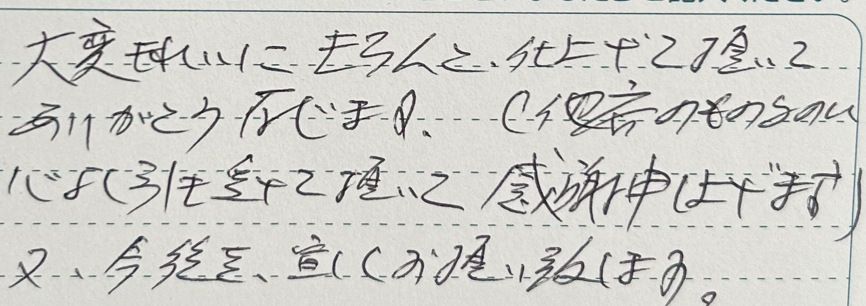 大変きれいに きちんと、仕上げて頂いて
ありがとう存じます。(他店のものも
心よく引き受けて頂いて 感謝申し上げます)
又、今後も、宜しくお願い致します。